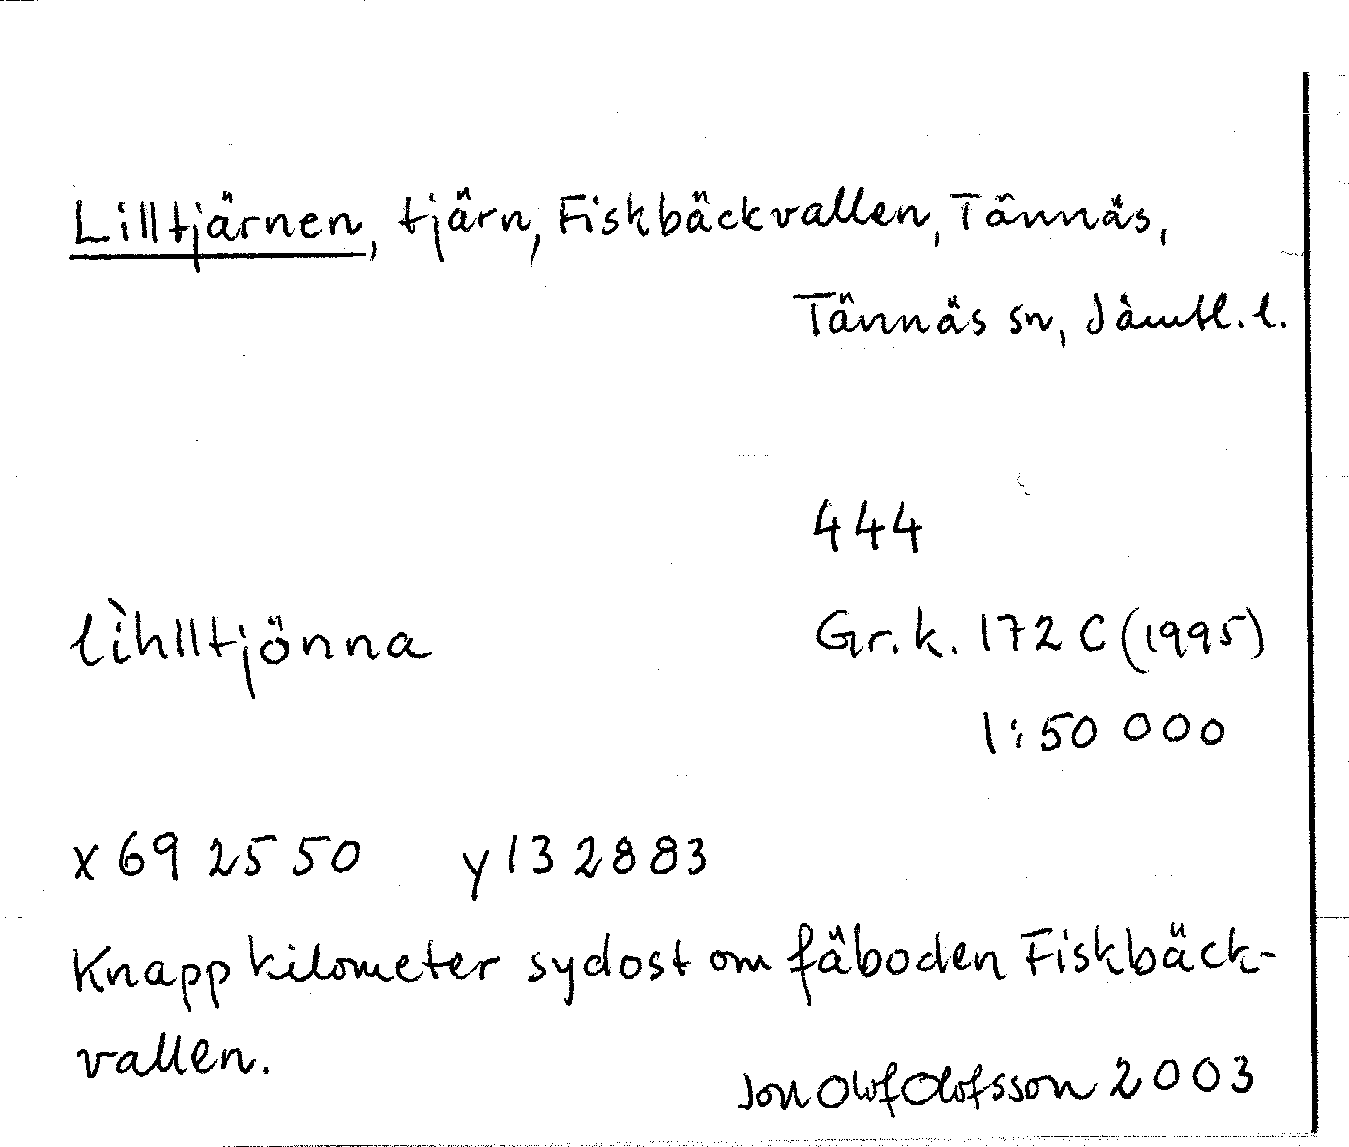 Lilltjärnen, tjärn, Fiskbäckvallen, Tännäs,
Tännäs sn, Jämtl. l.
444
lìhlltjönna
Gr.k. 172 C (1995)
1:50 000
x 69 25 50 y 13 28 83
Knapp kilometer sydost om fäboden Fiskbäck-
vallen.
Jon Olof Olofsson 2003